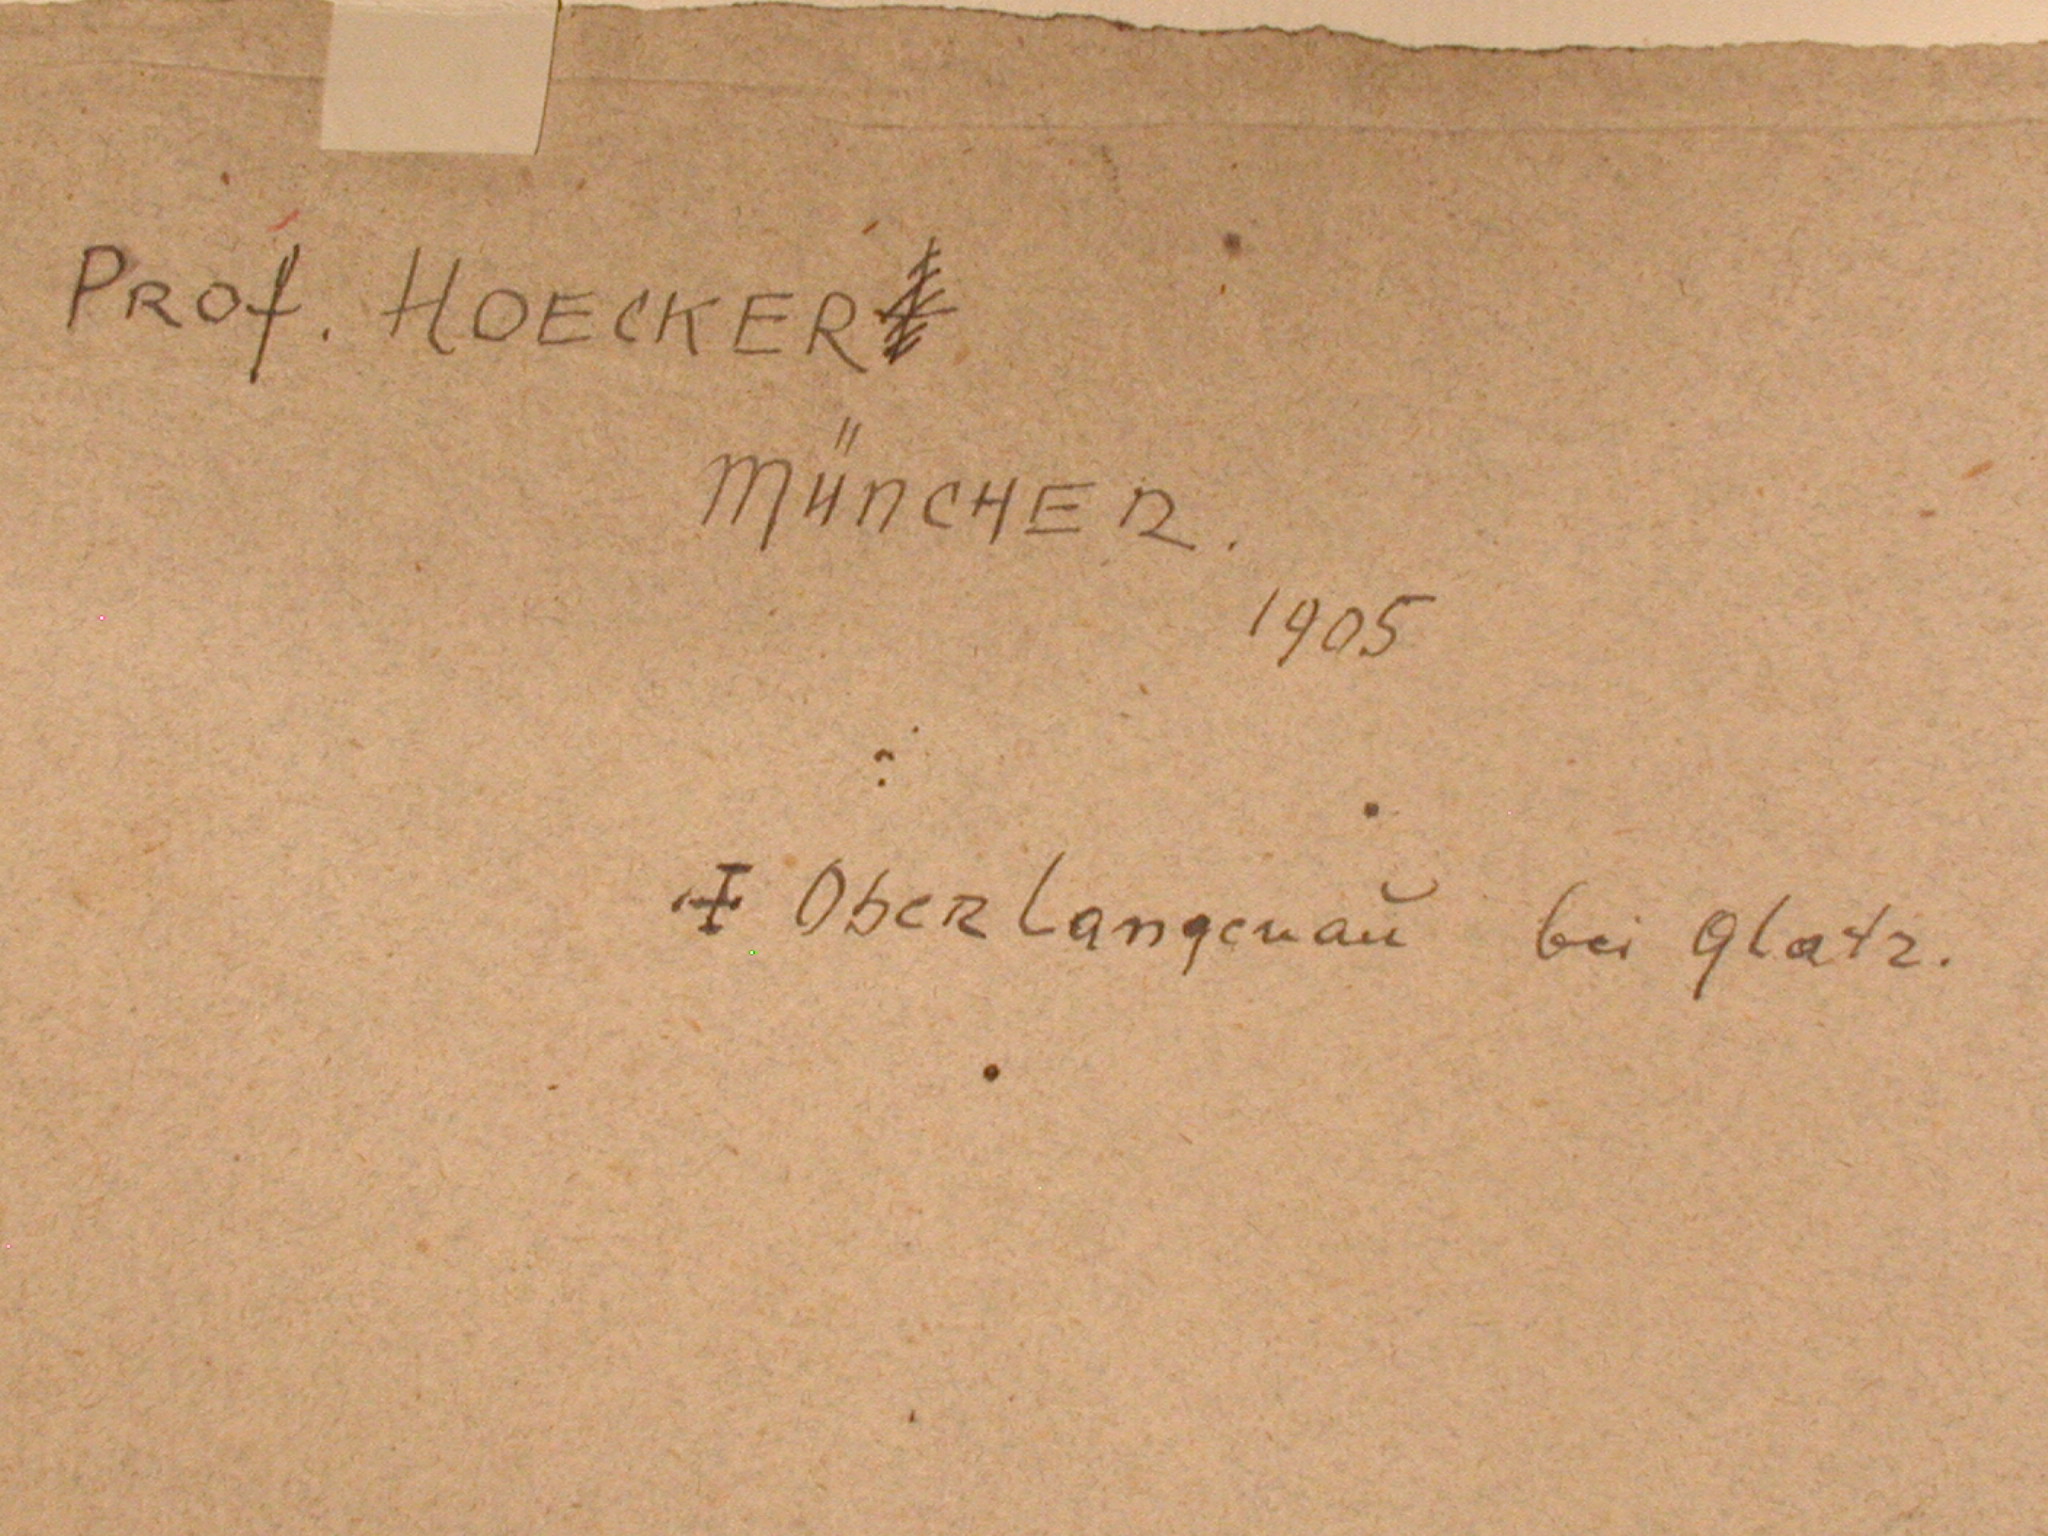 Prof. HOECKER
MÜNCHEN.
1905
Oberlangenau bei Glatz.